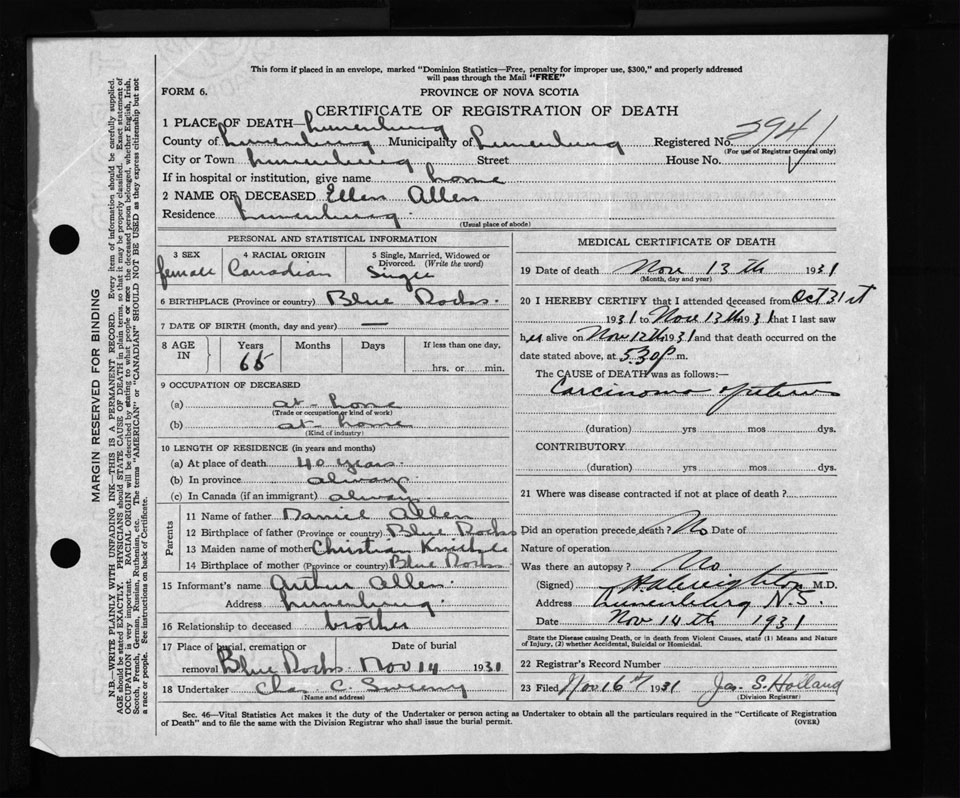 This form if placed in an envelope, marked "Dominion Statistics—Free, penalty for improper use, $300," and properly addressed
will pass through the Mail "FREE"
FORM 6.
PROVINCE OF NOVA SCOTIA
CERTIFICATE OF REGISTRATION OF DEATH
1 PLACE OF DEATH—Lunenburg
County of Lunenburg Municipality of Lunenburg Registered No. 2941
(For use of Registrar General only)
City or Town Lunenburg Street House No.
If in hospital or institution, give name home
2 NAME OF DECEASED Ellen Allen
Residence Lunenburg.
(Usual place of abode)
PERSONAL AND STATISTICAL INFORMATION
3 SEX 4 RACIAL ORIGIN 5 Single, Married, Widowed or
Divorced. (Write the word)
female Canadian Single
6 BIRTHPLACE (Province or country) Blue Rocks.
7 DATE OF BIRTH (month, day and year) —
8 AGE IN Years Months Days If less than one day,
65 hrs. or min.
9 OCCUPATION OF DECEASED
(a) at home
(Trade or occupation or kind of work)
(b) at home
(Kind of industry)
10 LENGTH OF RESIDENCE (in years and months)
(a) At place of death 40 years.
(b) In province always
(c) In Canada (if an immigrant) always
Parents
11 Name of father Daniel Allen
12 Birthplace of father (Province or country) Blue Rocks
13 Maiden name of mother Christian
14 Birthplace of mother (Province or country) Blue Rocks
15 Informant's name Arthur Allen.
Address Lunenburg.
16 Relationship to deceased brother
17 Place of burial, cremation or Date of burial
removal Blue Rocks. Nov 14 1931
18 Undertaker Chas. C. Sweeny
(Name and address)
MEDICAL CERTIFICATE OF DEATH
19 Date of death Nov 13th 1931
(Month, day and year)
20 I HEREBY CERTIFY that I attended deceased from Oct 31st
1931 to Nov 13th 1931 that I last saw
her alive on Nov 12th 1931 and that death occurred on the
date stated above, at 5.30 p.m.
The CAUSE of DEATH was as follows:—
Carcinoma of uterus
(duration) yrs mos dys.
CONTRIBUTORY
(duration) yrs mos dys.
21 Where was disease contracted if not at place of death?
Did an operation precede death? No Date of
Nature of operation
Was there an autopsy? No
(Signed) H.A. Creighton M.D.
Address Lunenburg N.S.
Date Nov 14th 1931
State the Disease causing Death, or in death from Violent Causes, state (1) Means and Nature
of Injury, (2) whether Accidental, Suicidal or Homicidal.
22 Registrar's Record Number
23 Filed Nov 16th 1931 Jas. S. Holland
(Division Registrar)
Sec. 46—Vital Statistics Act makes it the duty of the Undertaker or person acting as Undertaker to obtain all the particulars required in the "Certificate of Registration
of Death" and to file the same with the Division Registrar who shall issue the burial permit. (OVER)
MARGIN RESERVED FOR BINDING
N.B.—WRITE PLAINLY WITH UNFADING INK—THIS IS A PERMANENT RECORD. Every item of information should be carefully supplied.
AGE should be stated EXACTLY. PHYSICIANS should STATE CAUSE OF DEATH in plain terms, so that it may be properly classified. Exact statement of
OCCUPATION is very important. RACIAL ORIGIN will be described by stating to what people or race the deceased person belonged, whether English, Irish,
Scotch, French, German, Russian, Ruthenian, etc. The terms "AMERICAN" or "CANADIAN" SHOULD NOT BE USED as they express citizenship but not
a race or people. See instructions on back of Certificate.